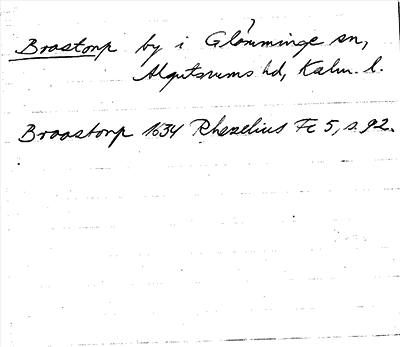 Brostorp by i Glömminge sn,
Algutsrums hd, Kalm. l.
Broastorp 1634 Rhezelius Fc 5, s. 92.